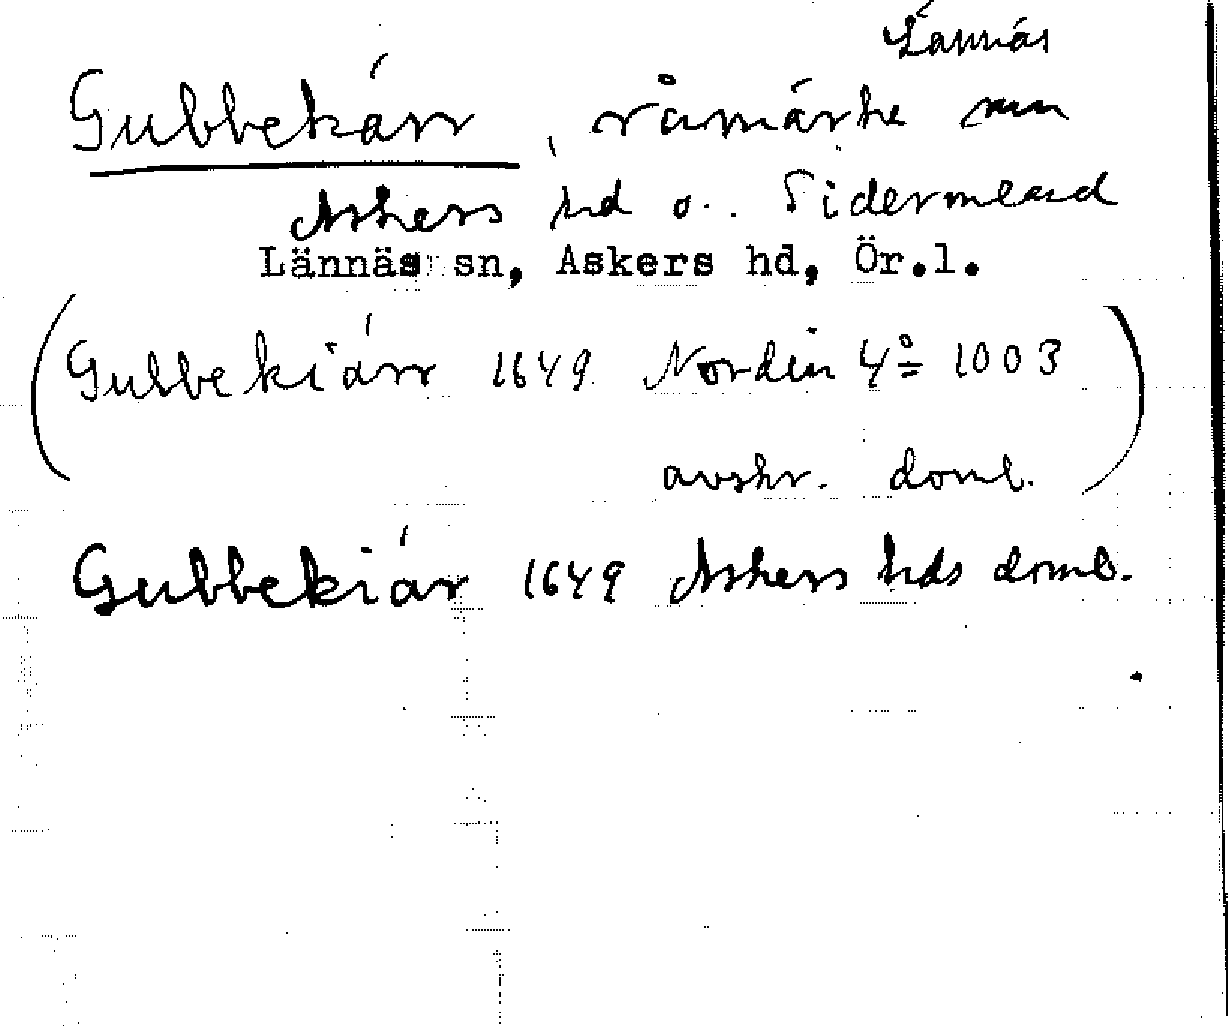 Lännäs
Gubbekärr, råmärke mn
Askers hd o. Södermland
Lännäs sn, Askers hd, Ör.l.
(Gubbekiärr 1649 Nordin 4:o 1003
avskr. domb.)
Gubbekiär 1649 Askers hds domb.